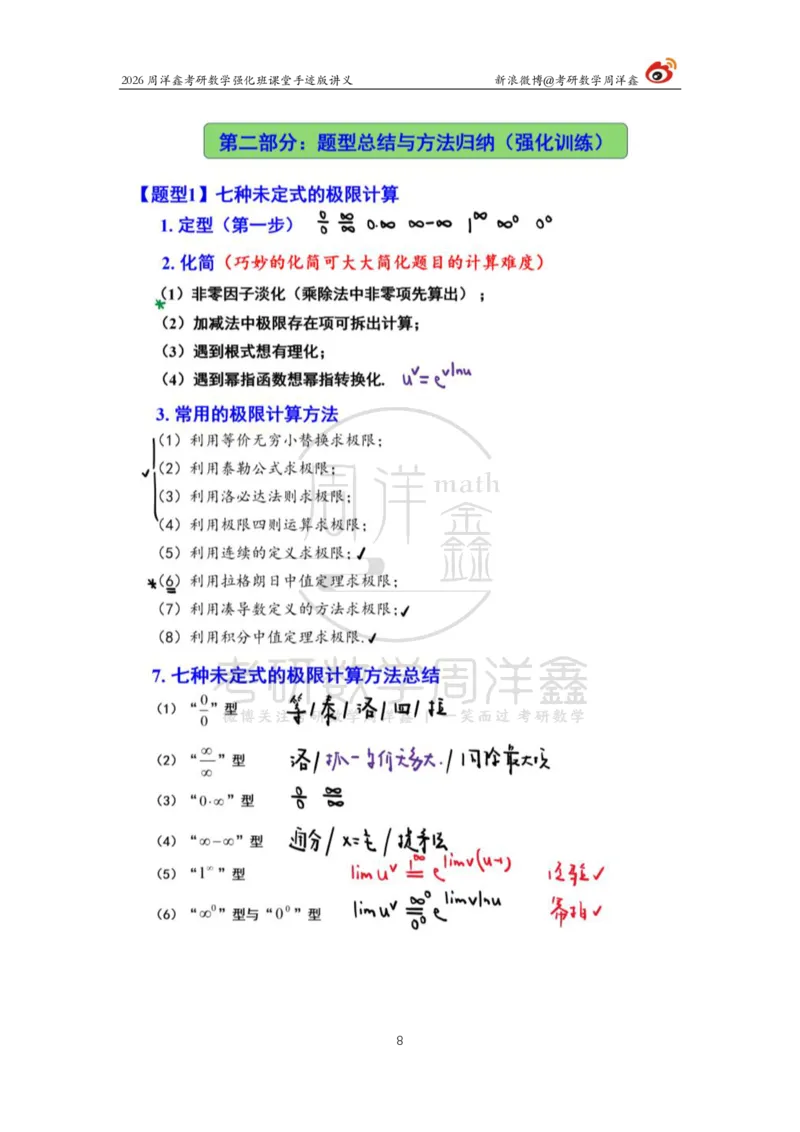 2026 周洋鑫考研数学强化班课堂手迹版讲义 新浪微博@考研数学周洋鑫
第二部分：题型总结与方法归纳（强化训练）
【题型1】七种未定式的极限计算
1. 定型（第一步） 0/0 ∞/∞ 0·∞ ∞-∞ 1^∞ ∞^0 0^0
2. 化简（巧妙的化简可大大简化题目的计算难度）
（1）非零因子淡化（乘除法中非零项先算出）；
（2）加减法中极限存在项可拆出计算；
（3）遇到根式想有理化；
（4）遇到幂指函数想幂指转换化. u^v=e^{vlnu}
3. 常用的极限计算方法
（1）利用等价无穷小替换求极限；
（2）利用泰勒公式求极限；
（3）利用洛必达法则求极限；
（4）利用极限四则运算求极限；
（5）利用连续的定义求极限；
（6）利用拉格朗日中值定理求极限；
（7）利用凑导数定义的方法求极限；
（8）利用积分中值定理求极限.
周洋鑫 math
考研数学周洋鑫
7. 七种未定式的极限计算方法总结
（1）“0/0”型 等/泰/洛/四/拉
微博关注考研数学周洋鑫 | 一笑而过 考研数学
（2）“∞/∞”型 洛/抓一与价无穷大./同除最大项
（3）“0·∞”型 0/0 ∞/∞
（4）“∞-∞”型 通分/x=1/t/提手法
（5）“1^∞”型 lim u^v =(1^∞) e^{lim v(u-1)}
（6）“∞^0”型与“0^0”型 lim u^v =(∞^0, 0^0) e^{lim vlnu} 幂指✓
8